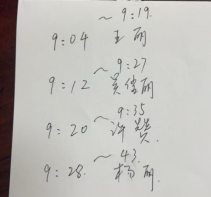 ~ 9:19.
9:04 王丽
~ 9:27
9:12 吴佳丽
~ 9:35
9:20 许
~ 43.
9:28. 杨丽.